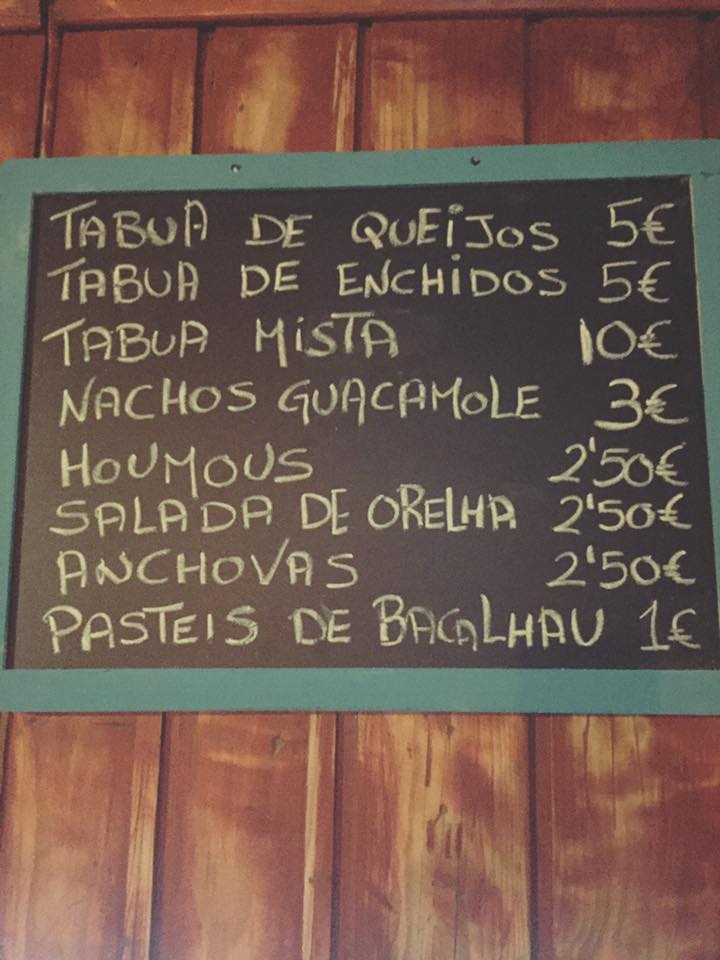 TABUA DE QUEIJOS 5€
TABUA DE ENCHIDOS 5€
TABUA MISTA 10€
NACHOS GUACAMOLE 3€
HOUMOUS 2'50€
SALADA DE ORELHA 2'50€
ANCHOVAS 2'50€
PASTEIS DE BACALHAU 1€